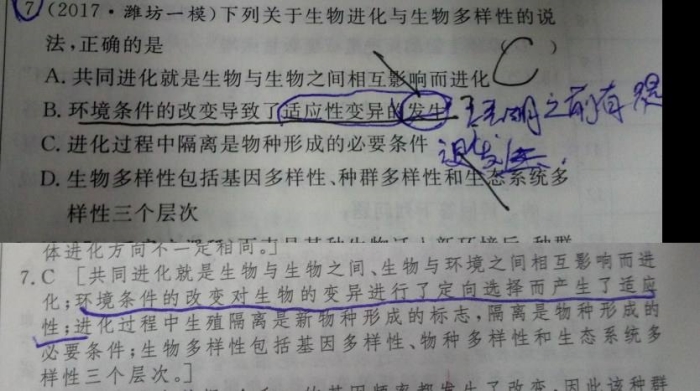 7 (2017·潍坊一模)下列关于生物进化与生物多样性的说
法,正确的是 ( C )
A. 共同进化就是生物与生物之间相互影响而进化
B. 环境条件的改变导致了适应性变异的发生
C. 进化过程中隔离是物种形成的必要条件
D. 生物多样性包括基因多样性、种群多样性和生态系统多
样性三个层次
体进化方向不一定相同。]
7. C [共同进化就是生物与生物之间、生物与环境之间相互影响而进
化;环境条件的改变对生物的变异进行了定向选择而产生了适应
性;进化过程中生殖隔离是新物种形成的标志,隔离是物种形成的
必要条件;生物多样性包括基因多样性、物种多样性和生态系统多
样性三个层次。]